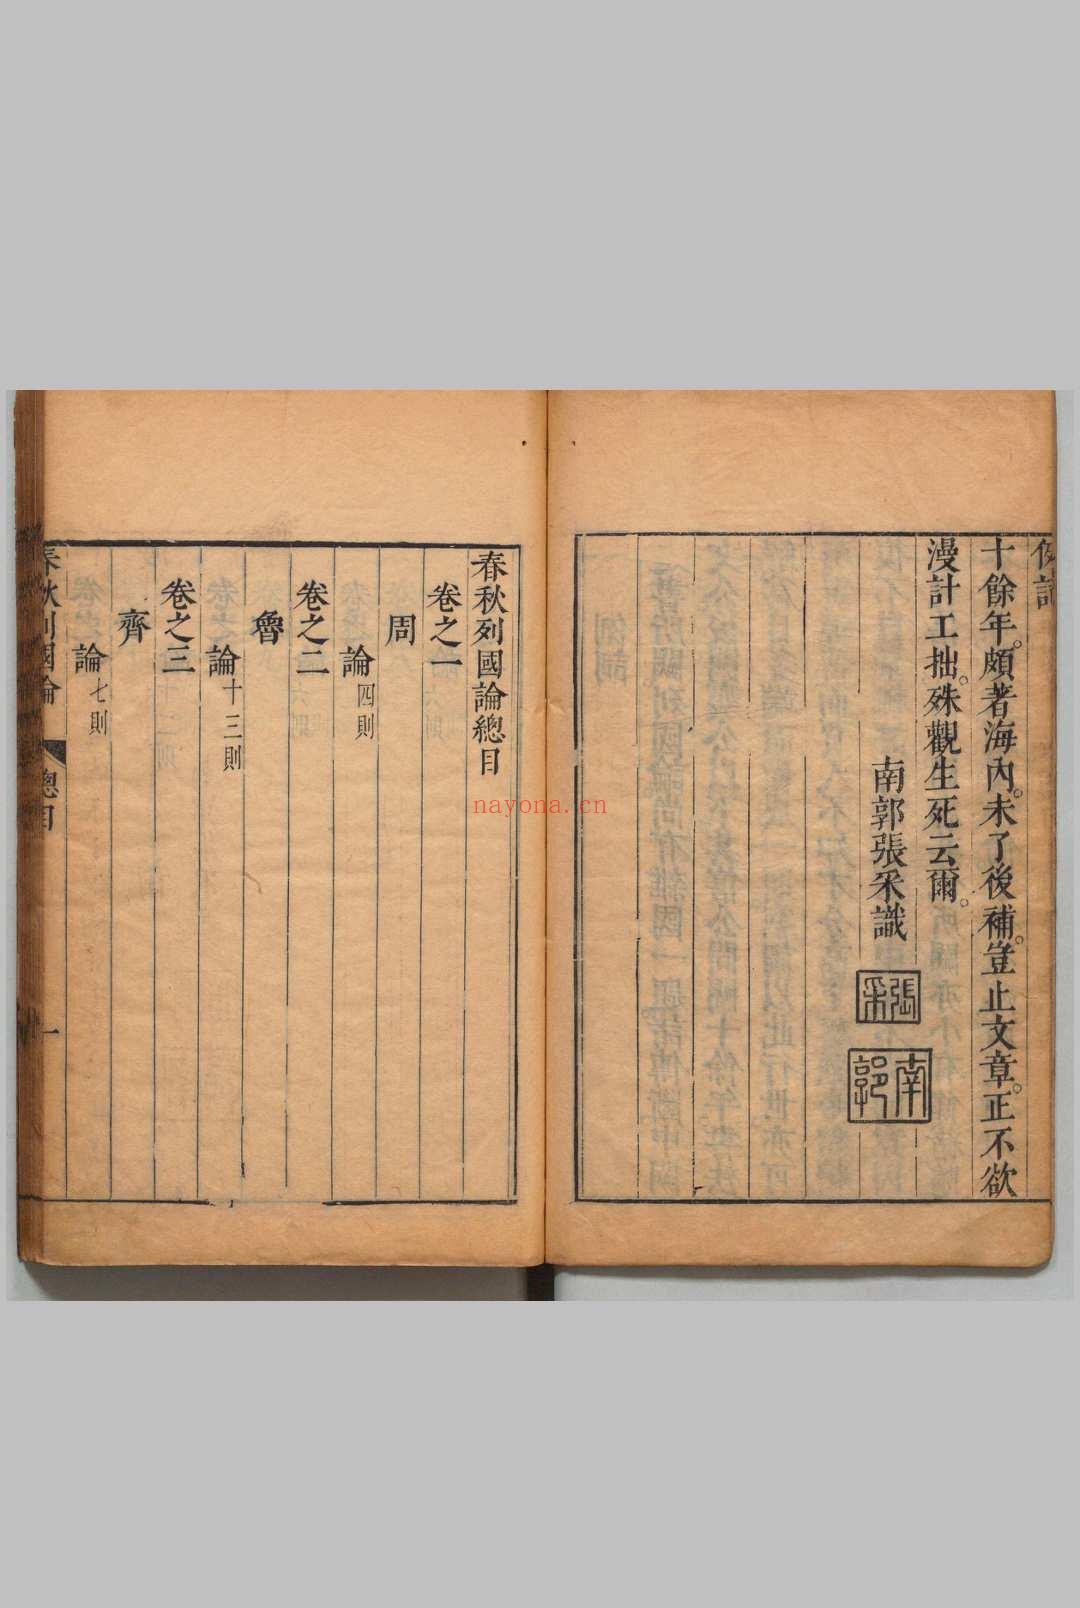 十餘年。頗著海內。未了後補。豈止文章。正不欲
漫計工拙。殊觀生死云爾。
南郭張采識
張采
南郭
春秋列國論總目
卷之一
周
論四則
卷之二
魯
論十三則
卷之三
齊
論七則
春秋列國論
總目
一
nayona.cn